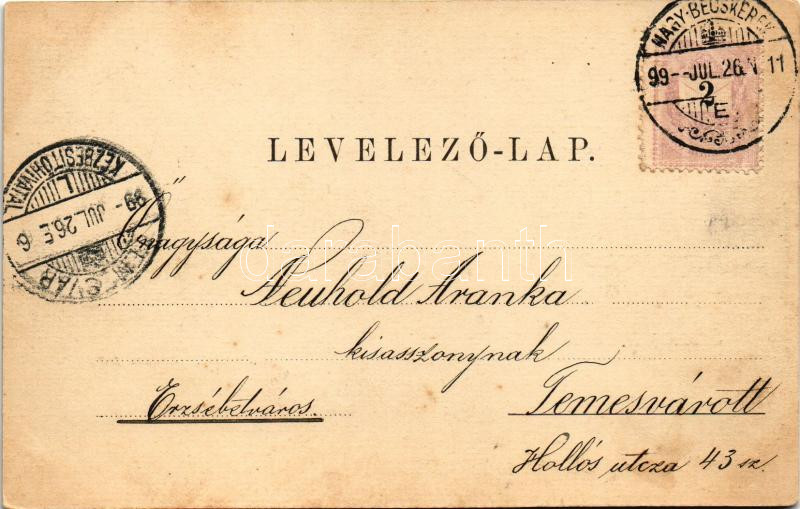 NAGY-BECSKEREK
99--JUL.26.N 11
2
E
LEVELEZŐ-LAP.
KÉZBESITŐHIVATAL
I.
99-JUL.26.E.6
Őnagysága
darabanth
Neuhold Aranka
kisasszonynak
Erzsébetváros.
Temesvárott
Hollós utcza 43 sz.